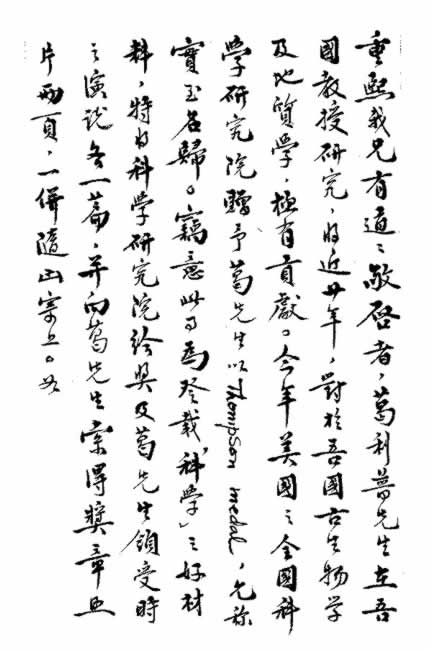 重熙我兄有道：敬啓者，葛利普先生在吾
國教授研究，將近廿年，對於吾國古生物學
及地質學，極有貢獻。今年美國之全國科
學研究院贈予葛先生以Thompson medal，允稱
實至名歸。竊意此事爲登載「科學」之好材
料，特將科學研究院給奬及葛先生領受時
之演說各一篇，并向葛先生索得奬章照
片兩頁，一併隨函寄上。如